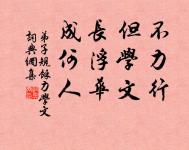 不力行
但學文
長浮華
成何人
弟子規餘力學文
詞典網集